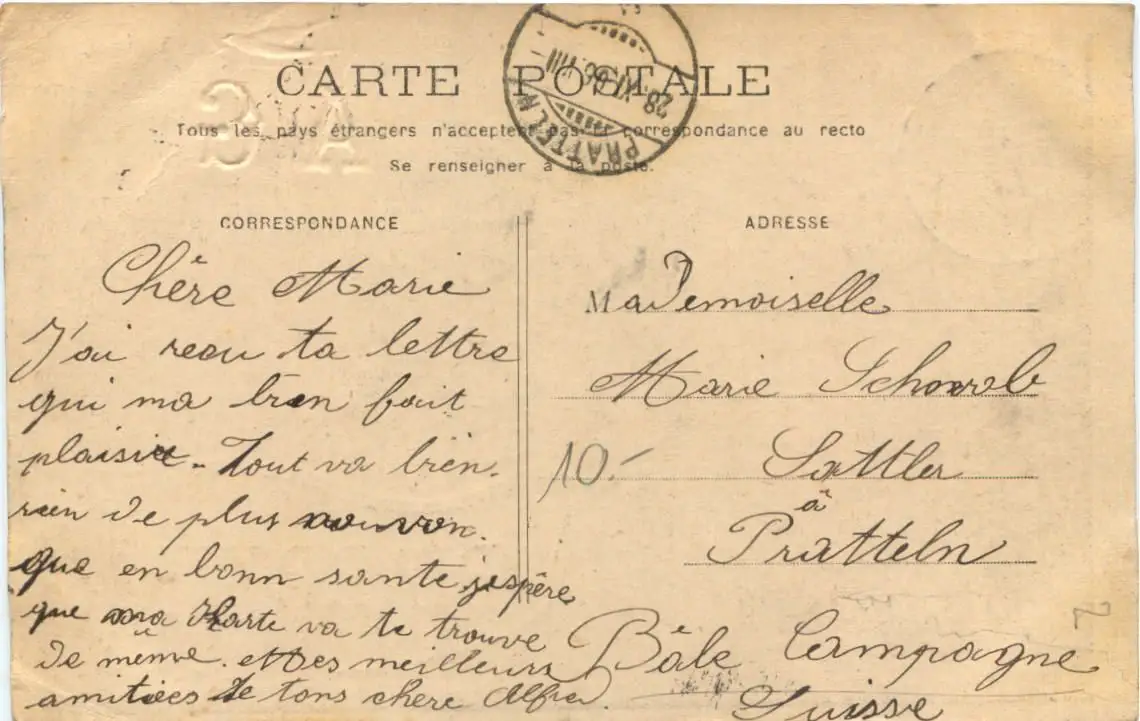 CARTE POSTALE
Tous les pays étrangers n'acceptent pas de correspondance au recto
Se renseigner à la poste.
PRATTELN
28. XI. 06. VIII
CORRESPONDANCE
Chère Marie
J'ai reçu ta lettre
qui ma bien fait
plaisir. Tout va bien.
rien de plus nouvon.
que en bonn sante jespère
que ma Karte va te trouve
de même. Mes meilleurs
amitiées de tons chere Alfred.
ADRESSE
MaDemoiselle
Marie Schwab
Sattler
10.-
à
Pratteln
Bâle Campagne
Suisse
2